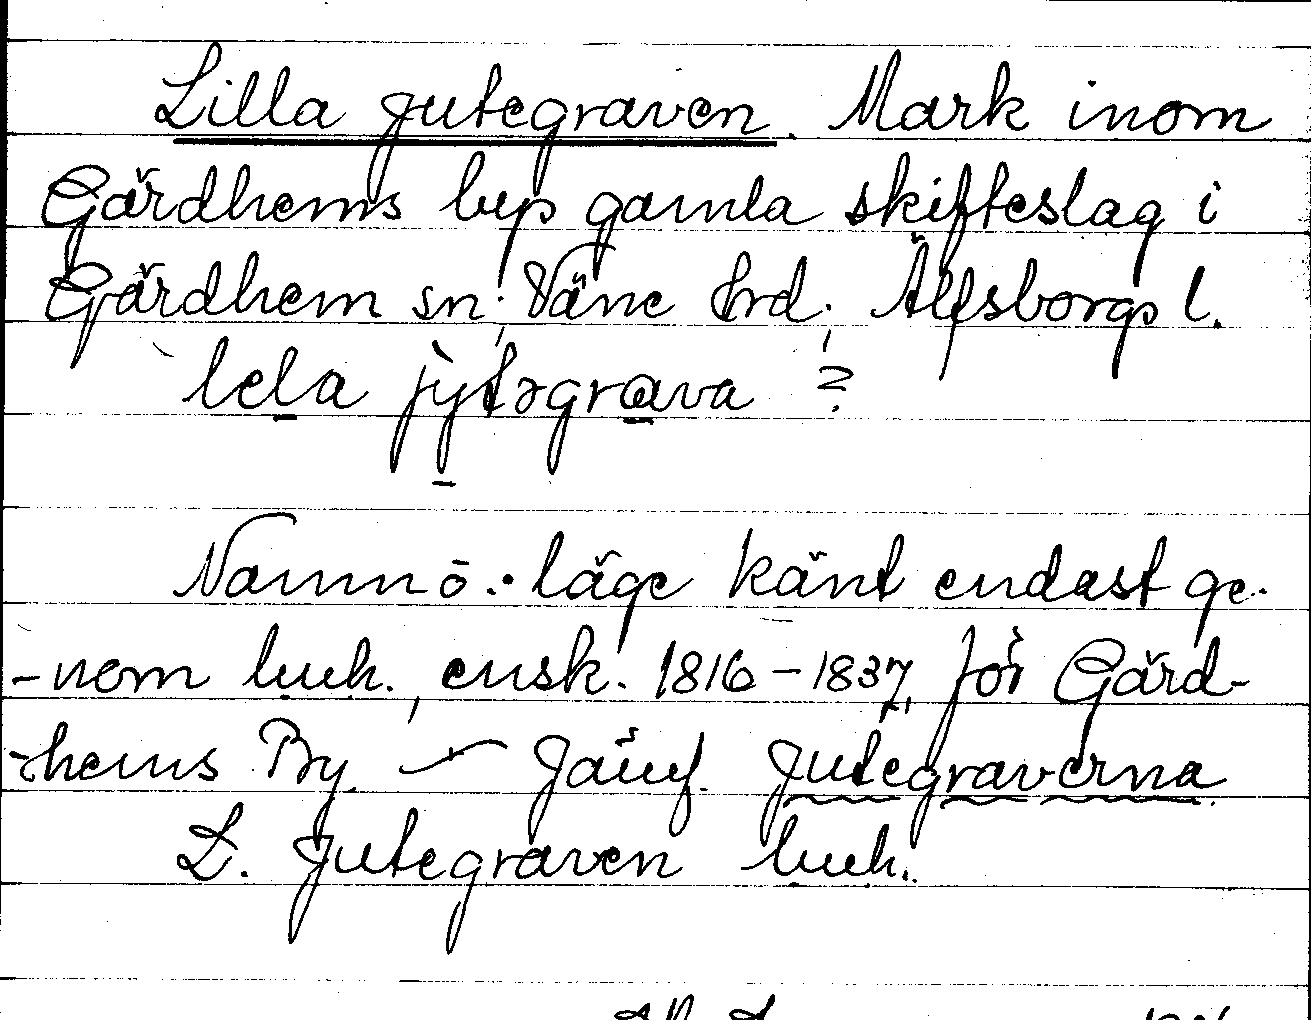 Lilla Jutegraven. Mark inom
Gärdhems bys gamla skifteslag i
Gärdhem sn; Väne hrd; Älfsborgs l.
lela jỳtəgrava ?
Namn ō. läge känt endast ge-
-nom luh., ensk. 1816-1837, för Gärd-
-hems By. Jämf. Jutegraverna
L. Jutegraven luh.